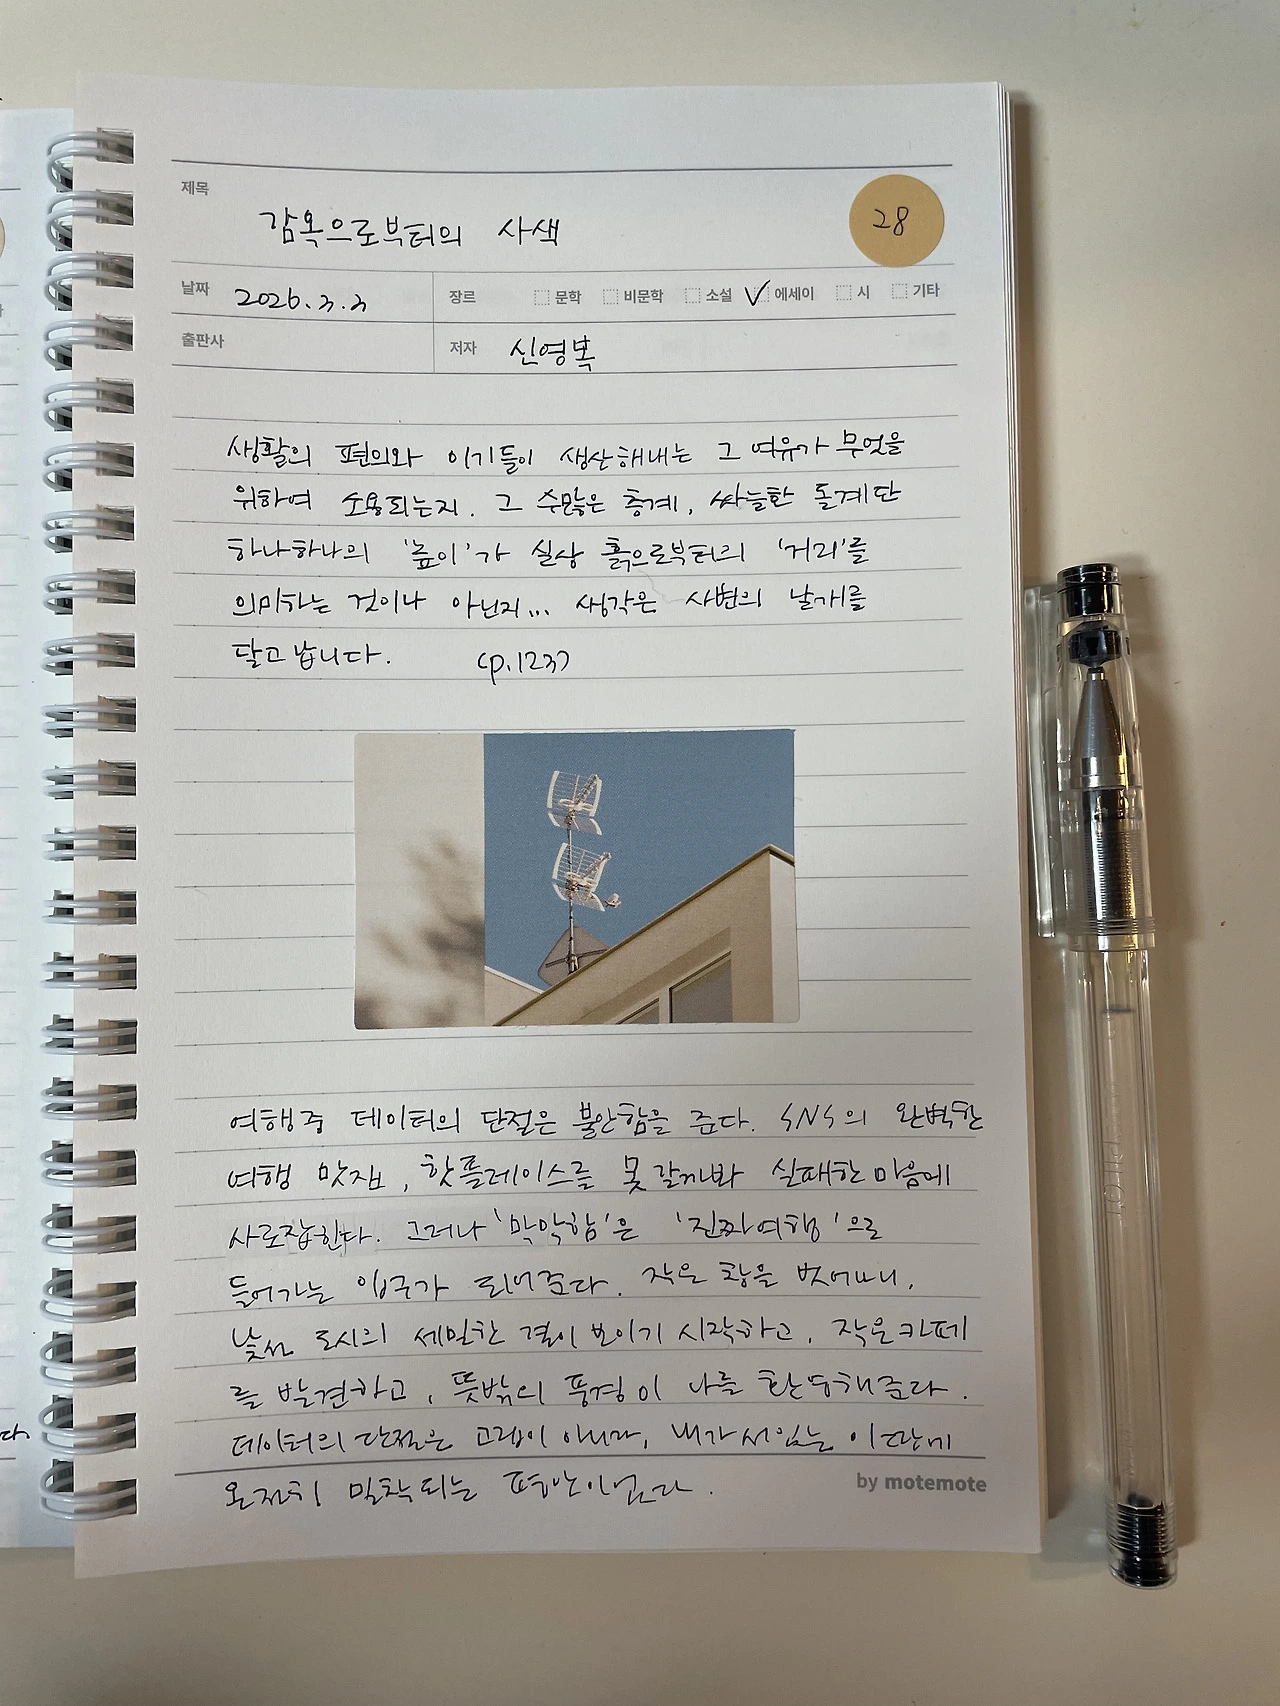 제목
감옥으로부터의 사색
28
날짜 2026.3.3 장르 문학 비문학 소설 에세이 시 기타
출판사 저자 신영복
생활의 편의와 이기들이 생산해내는 그 여유가 무엇을
위하여 소용되는지. 그 수많은 층계, 싸늘한 돌계단
하나하나의 '높이'가 실상 흙으로부터의 '거리'를
의미하는 것이나 아닌지... 생각은 사변의 날개를
달고 납니다. (p.123)
여행중 데이터의 단절은 불안함을 준다. SNS의 완벽한
여행 맛집, 핫플레이스를 못 갈까봐 실패한 마음에
사로잡힌다. 그러나 '막막함'은 '진짜여행'으로
들어가는 입구가 되어준다. 작은 창을 벗어나니,
낯선 도시의 세밀한 결이 보이기 시작하고, 작은 카페
를 발견하고, 뜻밖의 풍경이 나를 환영해준다.
데이터의 단절은 고립이 아니라, 내가 서있는 이 땅에
온전히 밀착되는 평안이었다.
by motemote
다